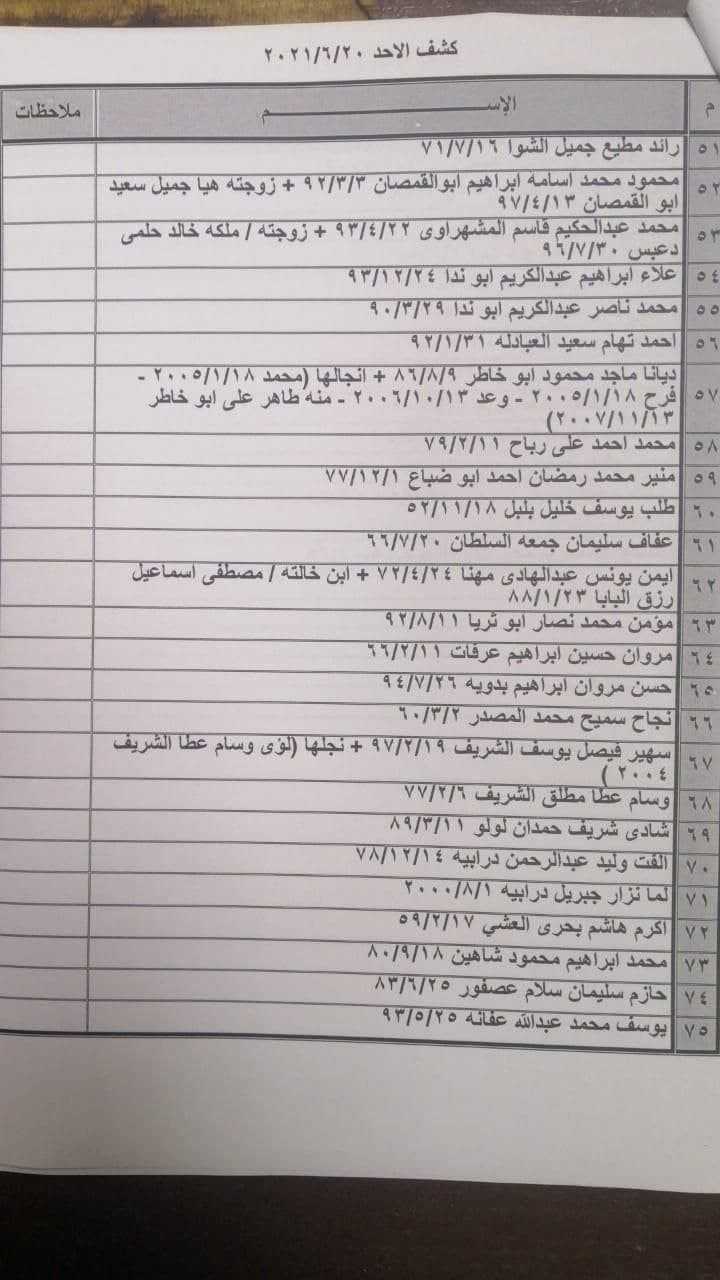 كشف الاحد ٢٠٢١/٦/٢٠
م الإســـــــــــــم ملاحظات
٥١ رائد مطيع جميل الشوا ٧١/٧/١٦
٥٢ محمود محمد اسامه ابراهيم ابوالقمصان ٩٢/٣/٣ + زوجته هيا جميل سعيد
ابو القمصان ٩٧/٤/١٣
٥٣ محمد عبدالحكيم قاسم المشهراوى ٩٣/٤/٢٢ + زوجته / ملكه خالد حلمى
دعبس ٩٦/٧/٣٠
٥٤ علاء ابراهيم عبدالكريم ابو ندا ٩٣/١٢/٢٤
٥٥ محمد ناصر عبدالكريم ابو ندا ٩٠/٣/٢٩
٥٦ احمد تهام سعيد العبادله ٩٢/١/٣١
٥٧ ديانا ماجد محمود ابو خاطر ٨٦/٨/٩ + انجالها (محمد ٢٠٠٥/١/١٨ -
فرح ٢٠٠٥/١/١٨ - وعد ٢٠٠٦/١٠/١٣ - منه طاهر على ابو خاطر
٢٠٠٧/١١/١٣)
٥٨ محمد احمد على رباح ٧٩/٢/١١
٥٩ منير محمد رمضان احمد ابو ضباع ٧٧/١٢/١
٦٠ طلب يوسف خليل بلبل ٥٢/١١/١٨
٦١ عفاف سليمان جمعه السلطان ٦٦/٧/٢٠
٦٢ ايمن يونس عبدالهادى مهنا ٧٢/٤/٢٤ + ابن خالته / مصطفى اسماعيل
رزق البابا ٨٨/١/٢٣
٦٣ مؤمن محمد نصار ابو ثريا ٩٢/٨/١١
٦٤ مروان حسين ابراهيم عرفات ٦٦/٢/١١
٦٥ حسن مروان ابراهيم بدويه ٩٤/٧/٢٦
٦٦ نجاح سميح محمد المصدر ٦٠/٣/٢
٦٧ سهير فيصل يوسف الشريف ٩٧/٢/١٩ + نجلها (لؤى وسام عطا الشريف
٢٠٠٤ )
٦٨ وسام عطا مطلق الشريف ٧٧/٢/٦
٦٩ شادى شريف حمدان لولو ٨٩/٣/١١
٧٠ الفت وليد عبدالرحمن درابيه ٧٨/١٢/١٤
٧١ لما نزار جبريل درابيه ٢٠٠٠/٨/١
٧٢ اكرم هاشم بحرى العشي ٥٩/٢/١٧
٧٣ محمد ابراهيم محمود شاهين ٨٠/٩/١٨
٧٤ حازم سليمان سلام عصفور ٨٣/٦/٢٥
٧٥ يوسف محمد عبدالله عفانه ٩٣/٥/٢٥